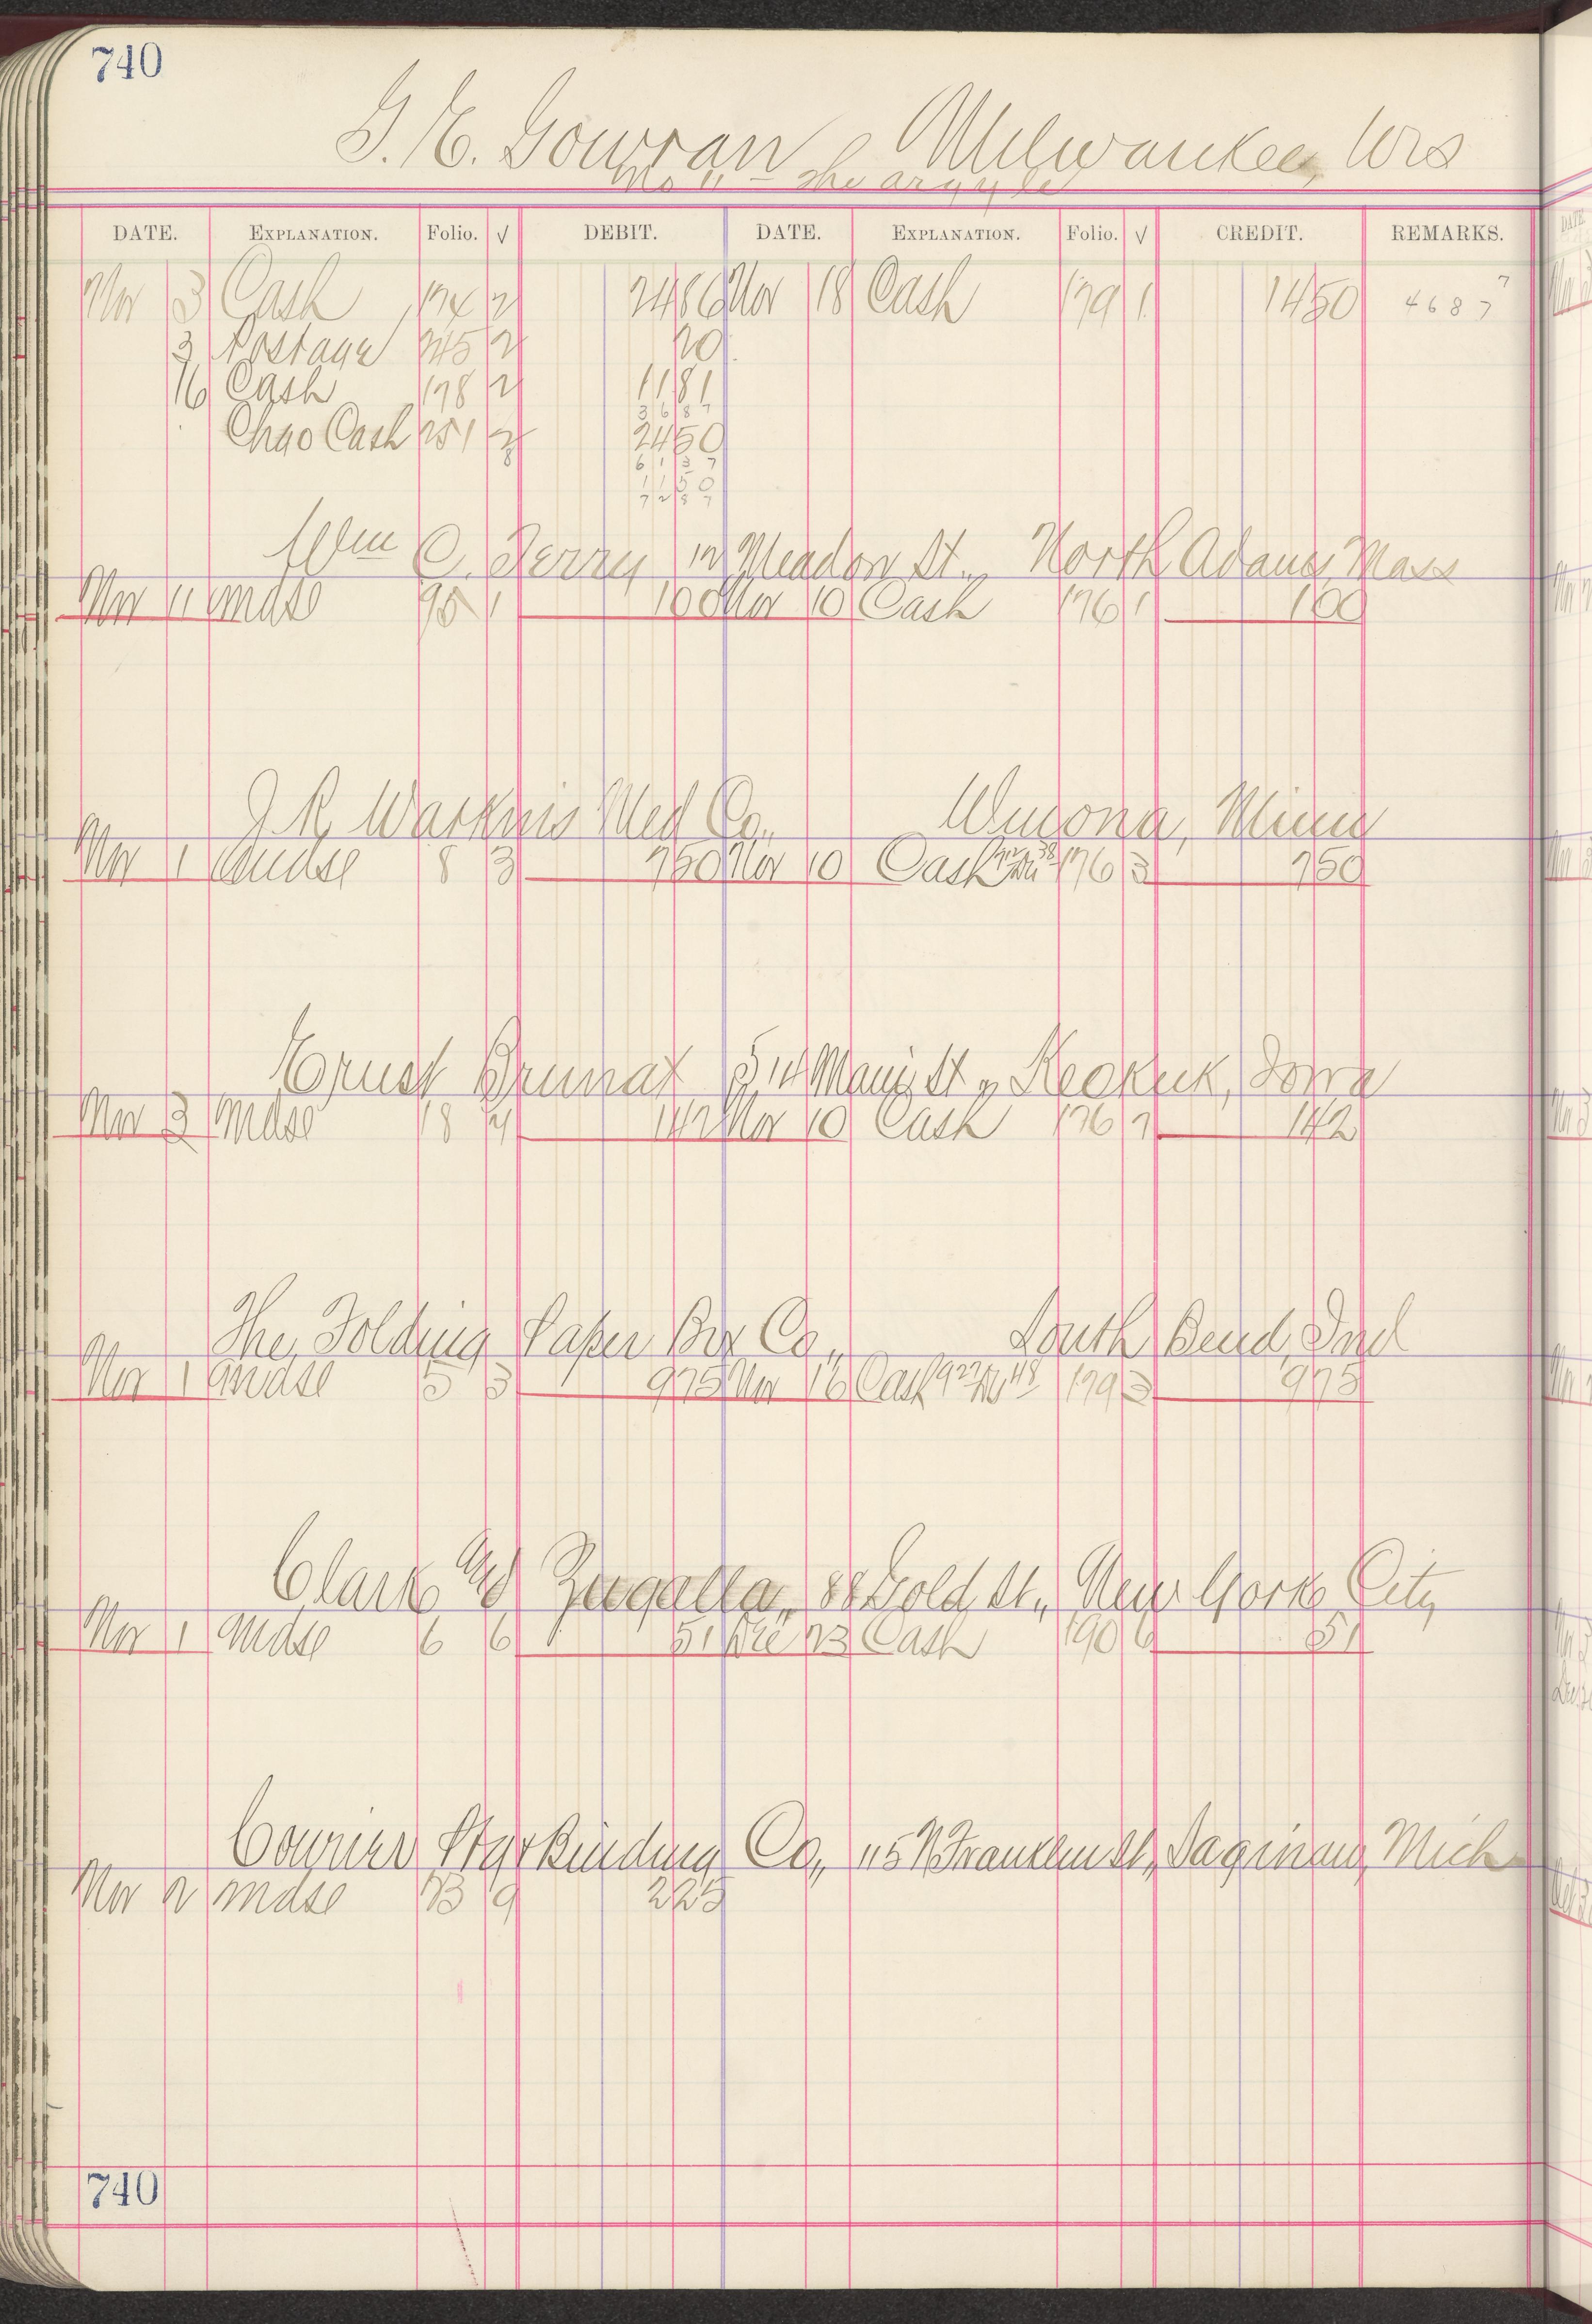 740
Milwaukee, Wis
No 11 - The Argyle
DATE. EXPLANATION. Folio. √ DEBIT. DATE. EXPLANATION. Folio. √ CREDIT. REMARKS.
Mar 3 Cash 174 2 2486 Mar 18 Cash 179 1 1450 4687
3 Postage 245 2 20
16 Cash 178 2 1181
3687
Chgo Cash 251 2450
6137
Wm C. Perry Meadow St., North Adams, Mass
Mar 11 Mdse 95 1 100 Mar 10 Cash 176 1 100
J. R. Watkins Med Co. Winona, Minn
Mar 1 Mdse 8 3 750 Mar 10 Cash 176 3 750
Ernst Brunat 514 Main St., Keokuk, Iowa
Mar 3 Mdse 18 142 Mar 10 Cash 176 142
The Folding Paper Box Co., South Bend, Ind
Mar 1 Mdse 5 3 975 Mar 16 Cash 179 3 975
Clark & Zugalla, 88 Gold St., New York City
Mar 1 Mdse 6 6 51 23 Cash 190 6 51
Courier Star Binding Co., 115 N Franklin St, Saginaw, Mich
Mar 2 Mdse 13 9 225
740